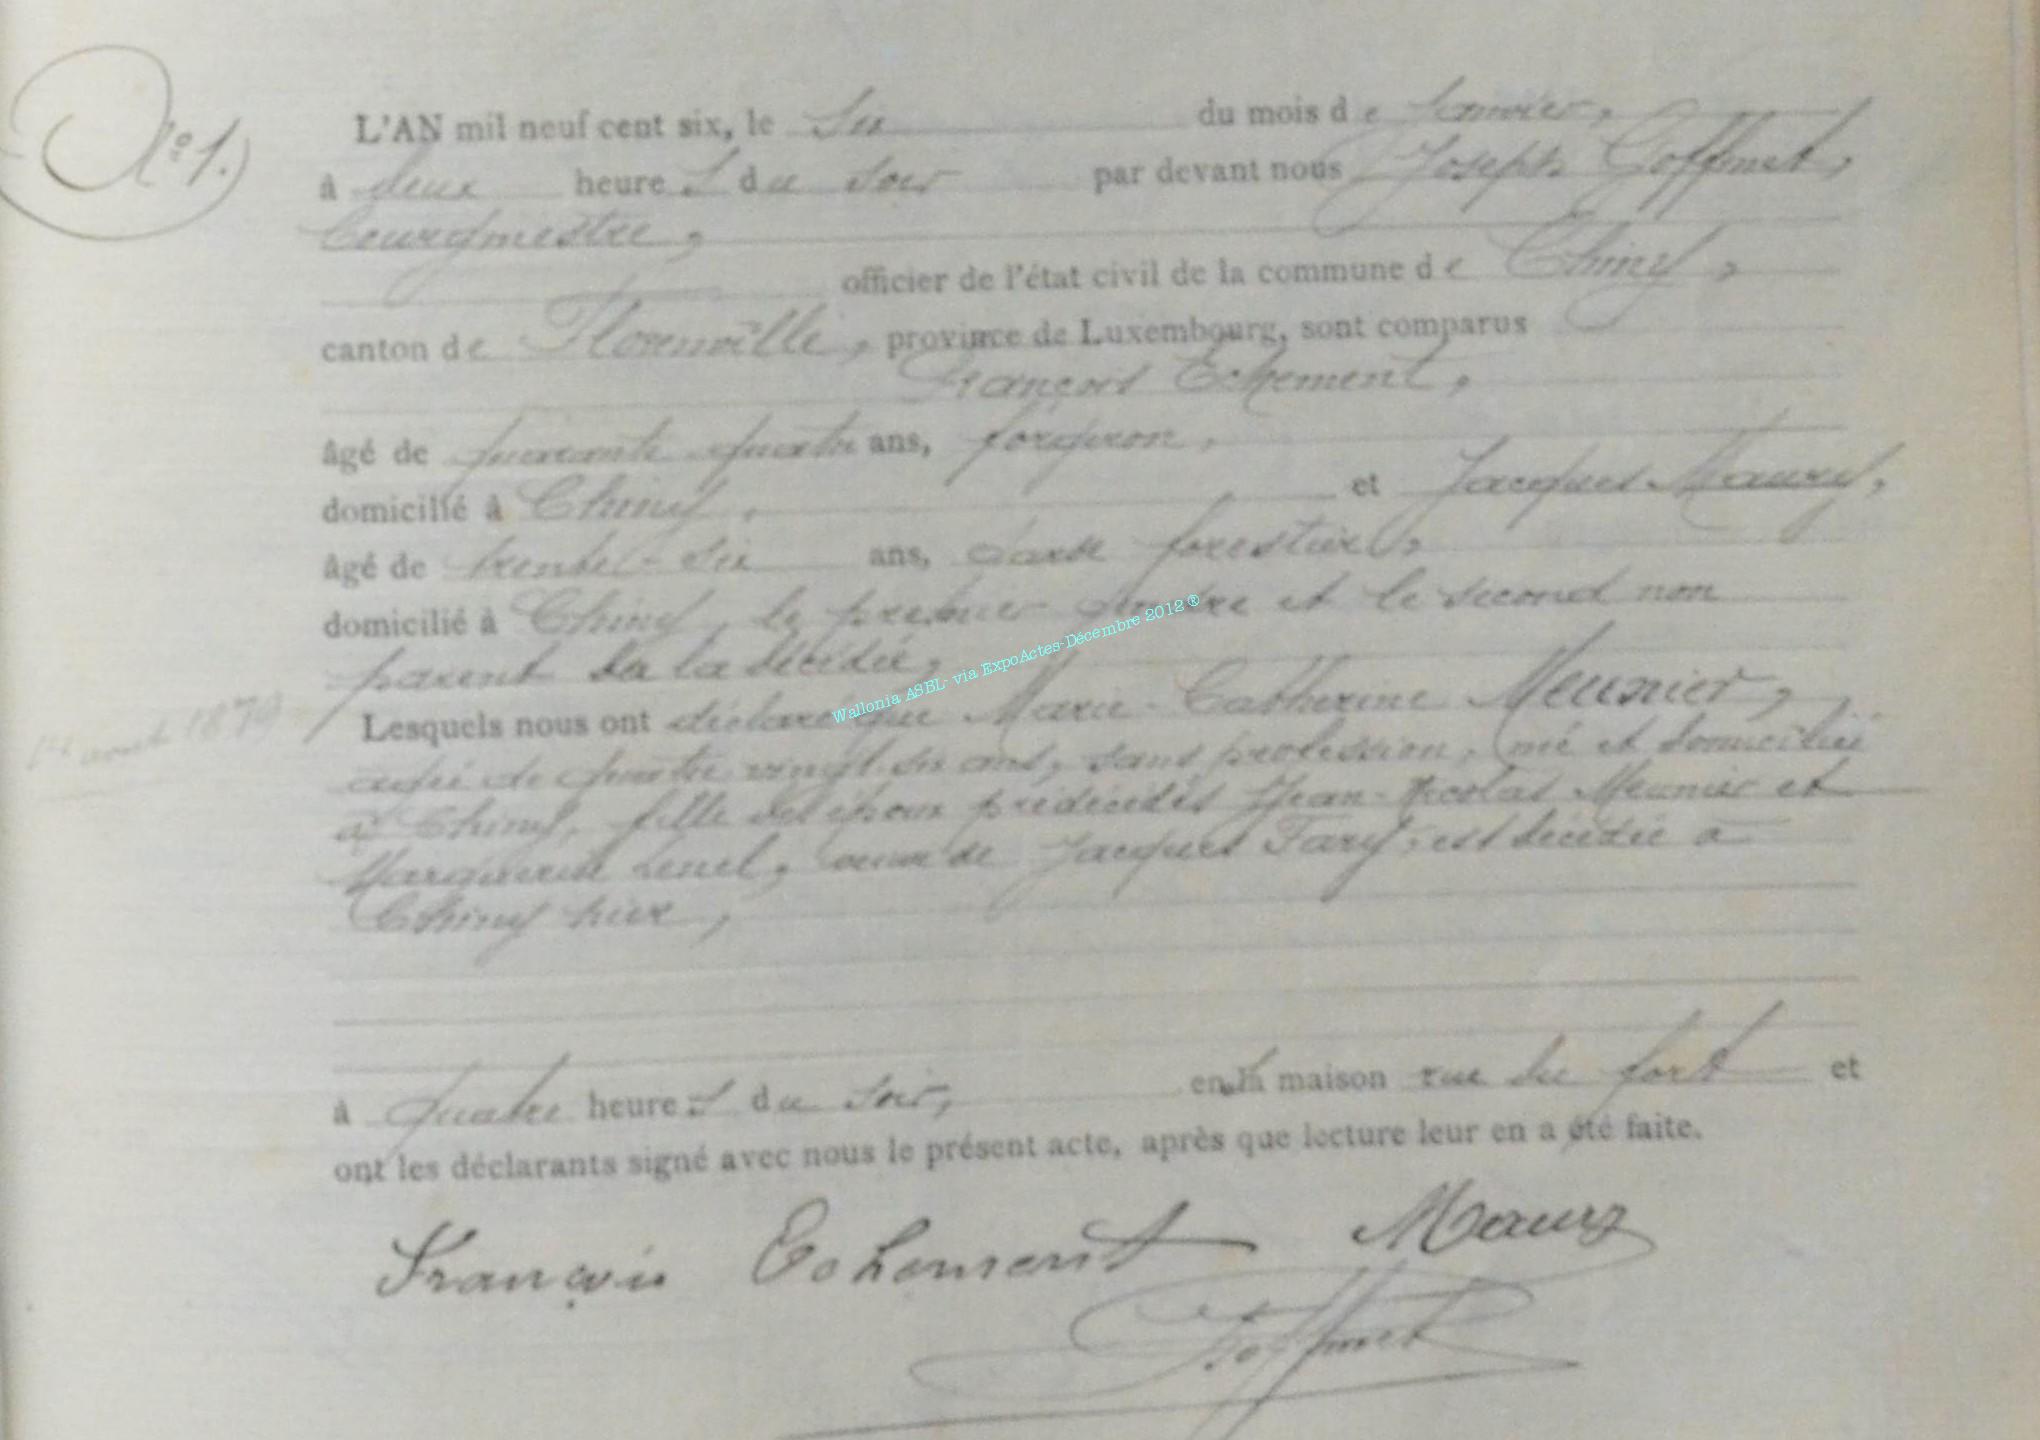 N° 1.
L'AN mil neuf cent six, le six du mois de Janvier,
à deux heures du soir par devant nous Joseph Goffinet,
bourgmestre,
officier de l'état civil de la commune de Chiny,
canton de Florenville, province de Luxembourg, sont comparus
François Echement,
âgé de quarante quatre ans, forgeron,
domicilié à Chiny, et Jacques Maury,
âgé de trente-six ans, Garde forestier,
domicilié à Chiny, le premier gendre et le second non
parent de la décédée,
Lesquels nous ont déclaré que Marie Catherine Meunier,
agée de quatre vingt six ans, sans profession, née et domiciliée
à Chiny, fille des époux prédécédés Jean-Nicolas Meunier et
Marguerite, veuve de Jacques Tary, est décédée à
Chiny hier,
1879
à quatre heures du soir, en la maison rue du fort et
ont les déclarants signé avec nous le présent acte, après que lecture leur en a été faite.
François Echement Maury
Goffinet
Wallonia ASBL- via ExpoActes-Décembre 2012 ®